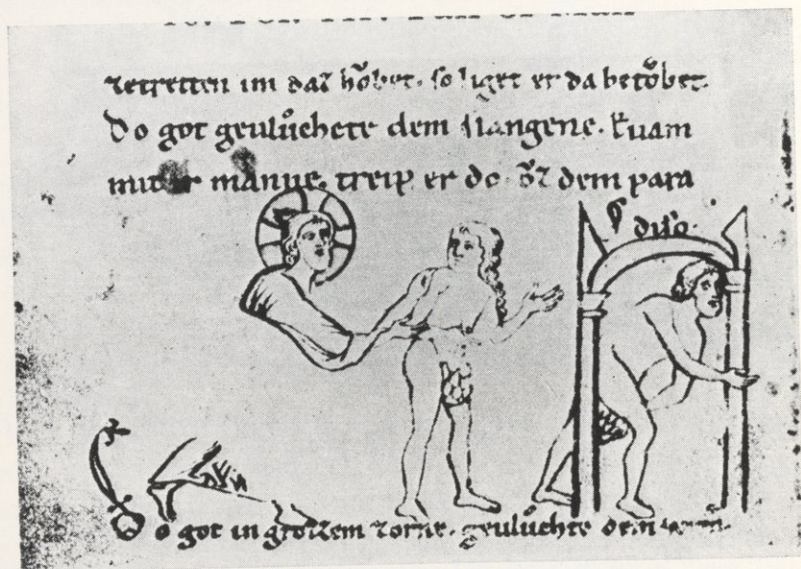 zetretten im daz hǒbet. so liget er da betǒbet.
Do got geulůchete dem slangene. Euam
mit ir manne. treip er do. ǒz dem para
diso.
Do got in grozzem zorne. geuluchte dem